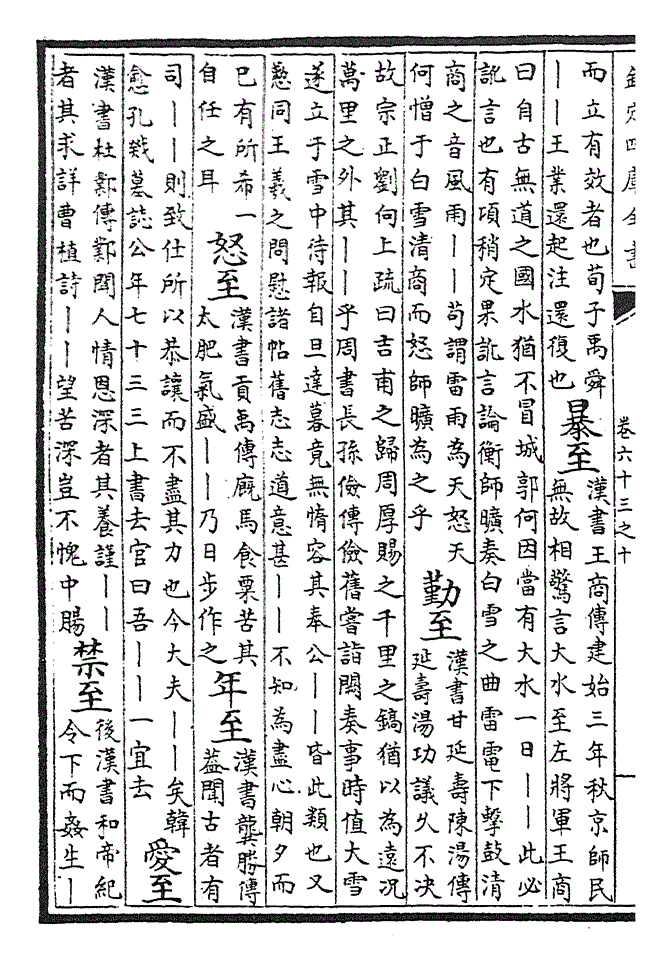 欽定四庫全書
卷六十三之十
而立有效者也荀子禹舜
——王業還起注還復也
暴至
漢書王商傳建始三年秋京師民
無故相驚言大水至左將軍王商
曰自古無道之國水猶不冒城郭何因當有大水一日——此必
訛言也有項稍定果訛言論衡師曠奏白雪之曲雷電下擊鼓清
商之音風雨——苟謂雷雨為天怒天
何憎于白雪清商而怒師曠為之乎
勤至
漢書甘延壽陳湯傳
延壽湯功議久不决
故宗正劉向上疏曰吉甫之歸周厚賜之千里之鎬猶以為遠況
萬里之外其——乎周書長孫儉傳儉舊嘗詣闕奏事時值大雪
遂立于雪中待報自旦達暮竟無惰容其奉公——皆此類也又
懃同王羲之問慰諸帖舊志志道意甚——不知為盡心朝夕而
已有所希一
自任之耳
怒至
漢書貢禹傳廄馬食粟苦其
太肥氣盛——乃日步作之
年至
漢書龔勝傳
蓋聞古者有
司——則致仕所以恭讓而不盡其力也今大夫——矣韓
愈孔戣墓誌公年七十三三上書去官曰吾——一宜去
愛至
漢書杜鄴傳鄴聞人情恩深者其養謹——
者其求詳曹植詩——望苦深豈不愧中腸
禁至
後漢書和帝紀
令下而姦生—